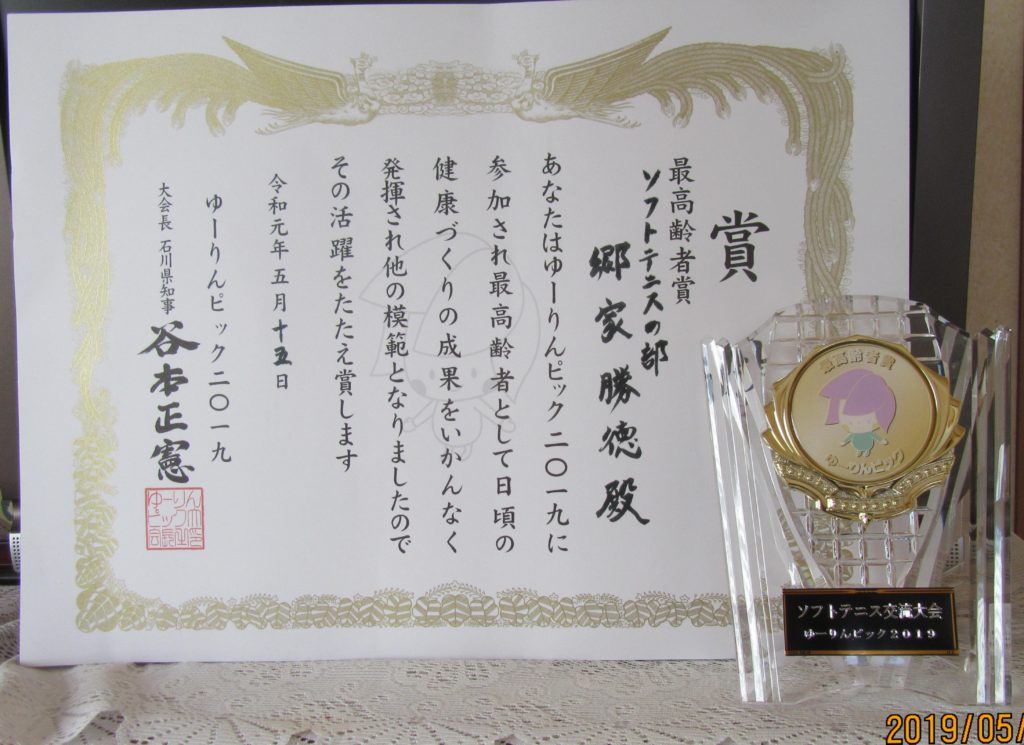 賞
最高齢者賞
ソフトテニスの部
郷家勝徳殿
あなたはゆーりんピック二〇一九に
参加され最高齢者として日頃の
健康づくりの成果をいかんなく
発揮され他の模範となりましたので
その活躍をたたえ賞します
令和元年五月十五日
ゆーりんピック二〇一九
大会長 石川県知事 谷本正憲
最高齢者賞
ゆーりんピック
ソフトテニス交流大会
ゆーりんピック2019
2019/05/